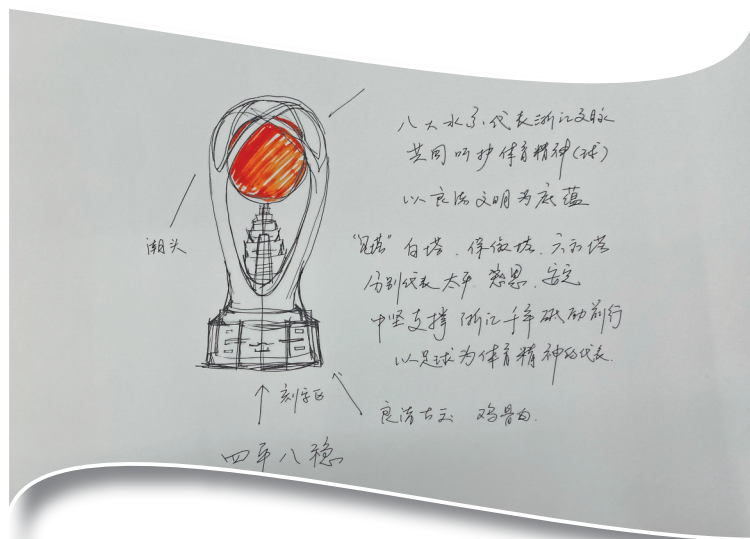 八大水系代表浙江文脉
共同呵护体育精神(球)
以良渚文明为底蕴
潮头
白塔、保俶塔、六和塔
分别代表太平 感恩 安定
中坚支撑 浙江千年砥砺前行
以足球为体育精神的代表.
刻字区
良渚古玉 鸡骨白.
四平八稳